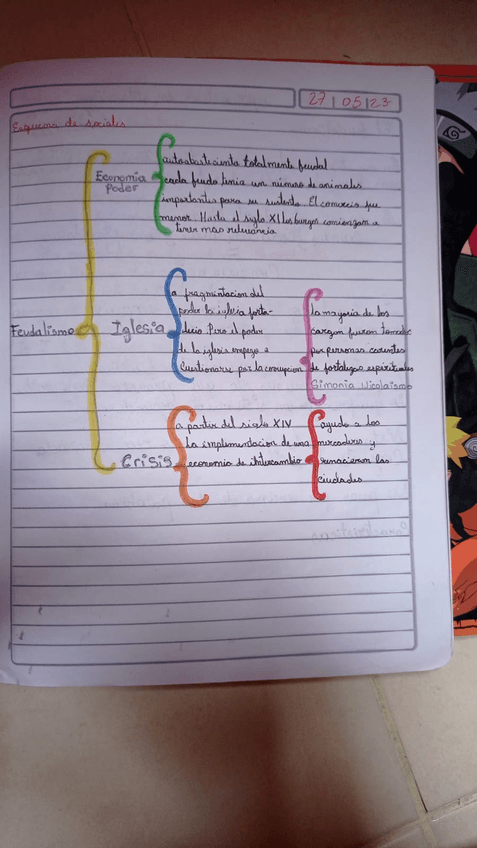 27 | 05 | 23
Esquema de sociales
Economía
Poder
autoabastecinta totalmente feudal
cada feudo tinia un número de animales
importantes para su sustento. El comercio fue
menor. Hasta el siglo XI los burgos comienzan a
tener mas relevancia
Feudalismo
Iglesia
a fragmentacion del
poder la iglesia forta-
lecio Pero el poder
de la iglesia empezo a
cuestionarse por la corrupcion
la mayoria de los
cargon fueron tomados
por personas carentes
de fortalezas espirituales
Simonia Nicolaismo
Crisis
a partir del siglo XIV
la implementacion de una
economia de intercambio
ayudo a los
mercaderes y
renacieron las
ciudades